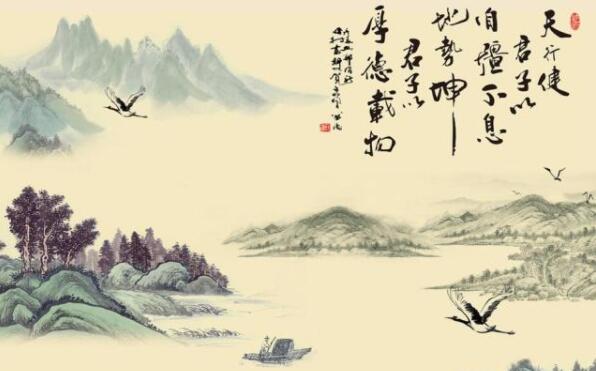 天行健
君子以
自彊不息
地勢坤
君子以
厚德載物